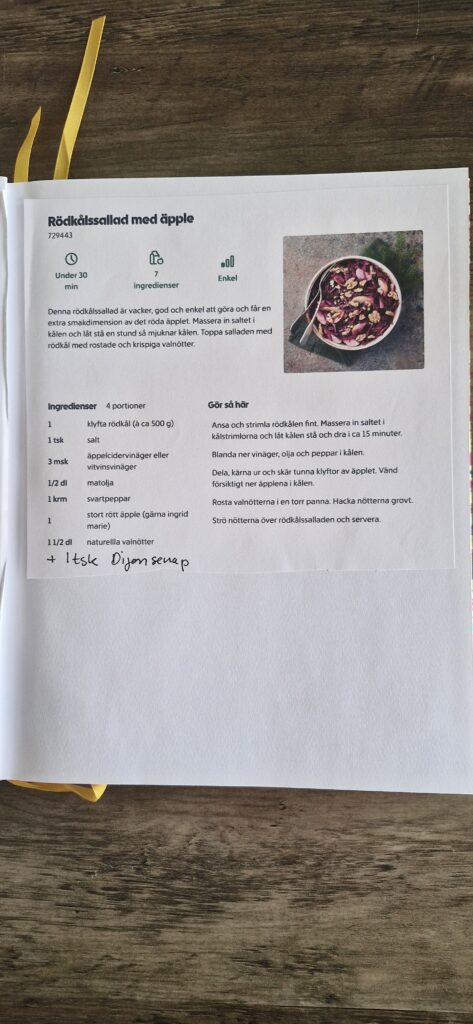 Rödkålssallad med äpple
729443
Under 30
min
7
ingredienser
Enkel
Denna rödkålssallad är vacker, god och enkel att göra och får en
extra smakdimension av det röda äpplet. Massera in saltet i
kålen och låt stå en stund så mjuknar kålen. Toppa salladen med
rödkål med rostade och krispiga valnötter.
Ingredienser 4 portioner
1 klyfta rödkål (à ca 500 g)
1 tsk salt
3 msk äppelcidervinäger eller
vitvinsvinäger
1/2 dl matolja
1 krm svartpeppar
1 stort rött äpple (gärna ingrid
marie)
1 1/2 dl naturella valnötter
+ 1 tsk Dijonsenap
Gör så här
Ansa och strimla rödkålen fint. Massera in saltet i
kålstrimlorna och låt kålen stå och dra i ca 15 minuter.
Blanda ner vinäger, olja och peppar i kålen.
Dela, kärna ur och skär tunna klyftor av äpplet. Vänd
försiktigt ner äpplena i kålen.
Rosta valnötterna i en torr panna. Hacka nötterna grovt.
Strö nötterna över rödkålssalladen och servera.